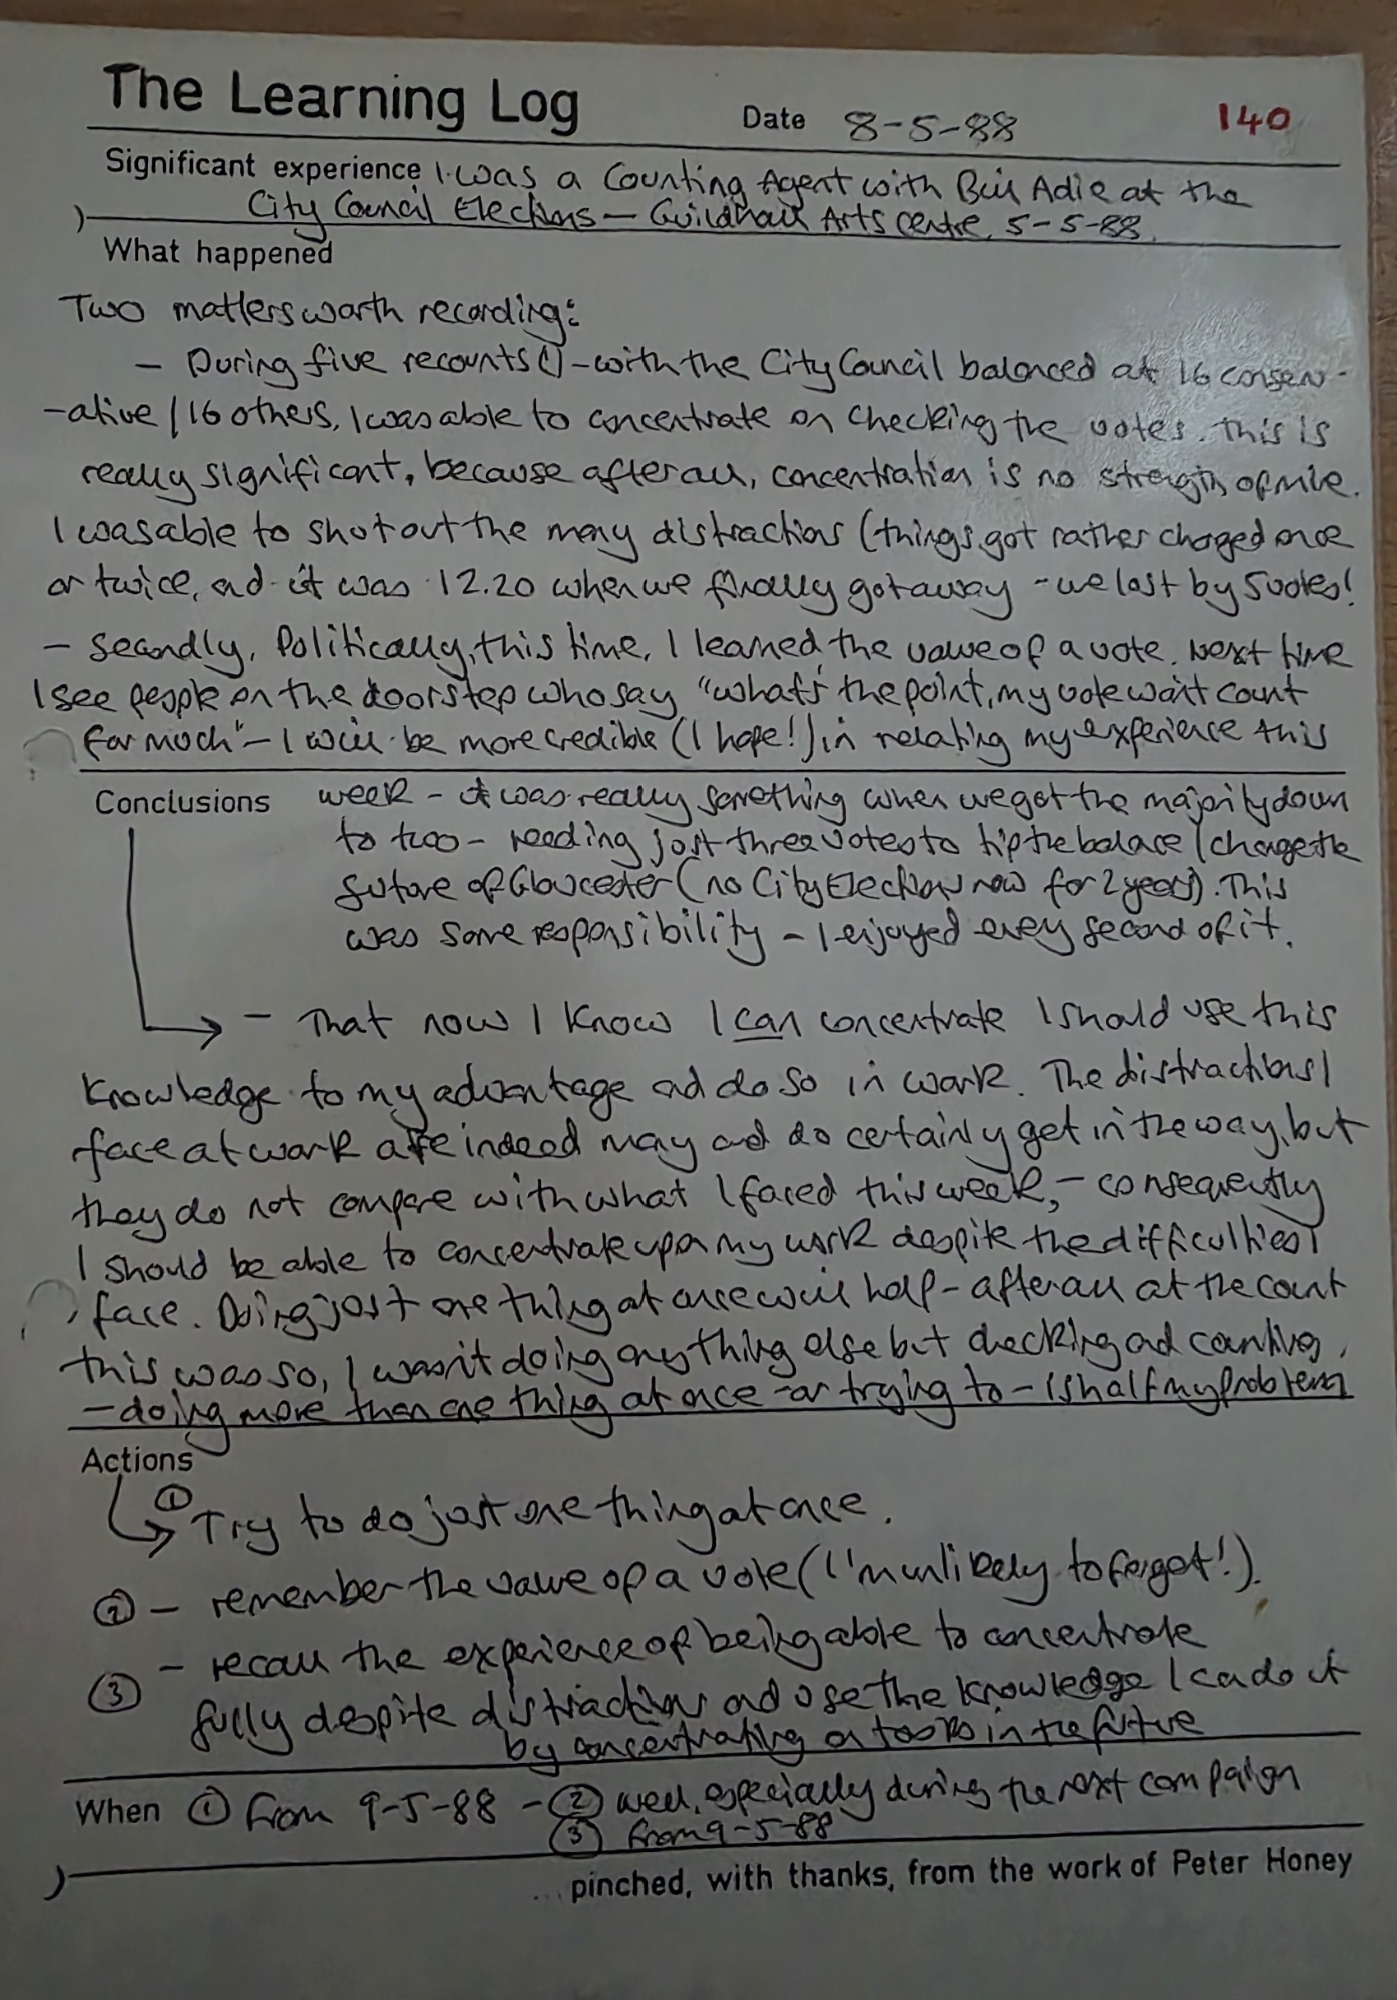 The Learning Log
Date 8-5-88
140
Significant experience I was a Counting Agent with Bill Adie at the
City Council Elections — Guildhall Arts Centre, 5-5-88.
What happened
Two matters worth recording:
- During five recounts (!) - with the City Council balanced at 16 conserv-
-ative / 16 others, I was able to concentrate on checking the votes. This is
really significant, because after all, concentration is no strength of mine.
I was able to shut out the many distractions (things got rather charged once
or twice, and it was 12.20 when we finally got away - we lost by 5 votes!
- Secondly, Politically, this time, I learned the value of a vote. Next time
I see people on the doorstep who say "what's the point, my vote won't count
for much" - I will be more credible (I hope!) in relating my experience this
Conclusions week - it was really something when we got the majority down
to two - needing just three votes to tip the balance / change the
future of Gloucester (no City Elections now for 2 years). This
was some responsibility - I enjoyed every second of it.
- That now I know I can concentrate I should use this
knowledge to my advantage and do so in work. The distractions I
face at work are indeed many and do certainly get in the way, but
they do not compare with what I faced this week, - consequently
I should be able to concentrate upon my work despite the difficulties I
face. Doing just one thing at once will help - after all at the count
this was so, I wasn't doing anything else but checking and counting,
- doing more than one thing at once - or trying to - is half my problem
Actions
① Try to do just one thing at once.
② - remember the value of a vote (I'm unlikely to forget!).
③ - recall the experience of being able to concentrate
fully despite distractions and use the knowledge I can do it
by concentrating on tasks in the future
When ① From 9-5-88 - ② well, especially during the next campaign
③ From 9-5-88
... pinched, with thanks, from the work of Peter Honey